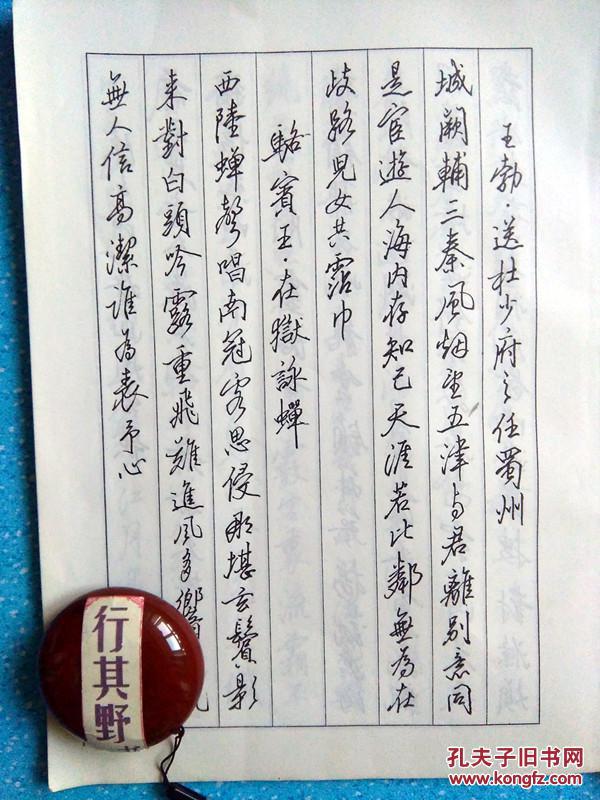 王勃·送杜少府之任蜀州
城闕輔三秦風烟望五津与君離別意同
是宦遊人海内存知己天涯若比鄰無為在
歧路児女共霑巾
駱賓王·在獄詠蟬
西陸蟬聲唱南冠客思侵那堪玄鬢影
来對白頭吟露重飛難進風多響
無人信高潔誰為表予心
行其野
孔夫子旧书网
www.kongfz.com